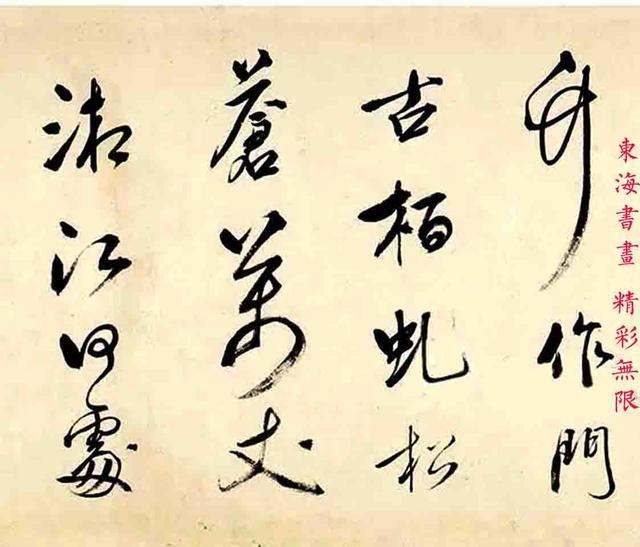 東海書畫 精彩無限
竹作門
古栢虬松
蒼萬丈
湘江何處